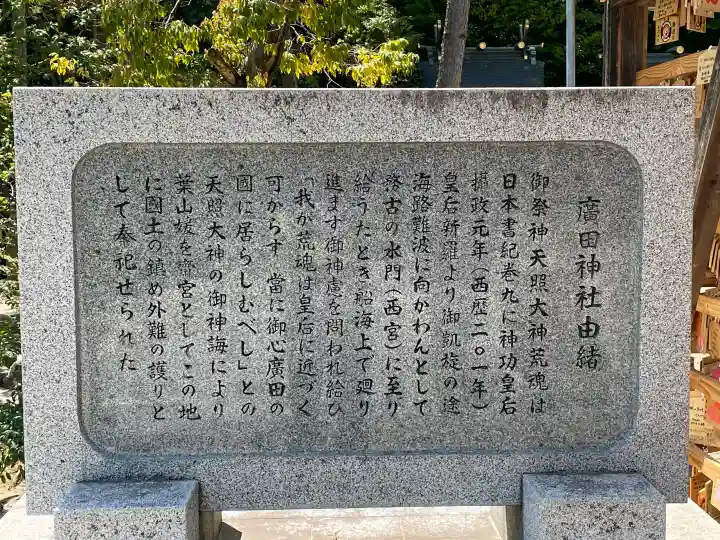 廣田神社由緒
御祭神天照大神荒魂は
日本書紀巻九に神功皇后
摂政元年(西歴二〇一年)
皇后新羅より御凱旋の途
海路難波に向かわんとして
務古の水門(西宮)に至り
給うたとき船海上で廻り
進まず御神慮を問われ給ひ
「我が荒魂は皇后に近づく
可からず 當に御心廣田の
國に居らしむべし」との
天照大神の御神誨により
葉山媛を齋宮としてこの地
に國土の鎮め外難の護りと
して奉祀せられた